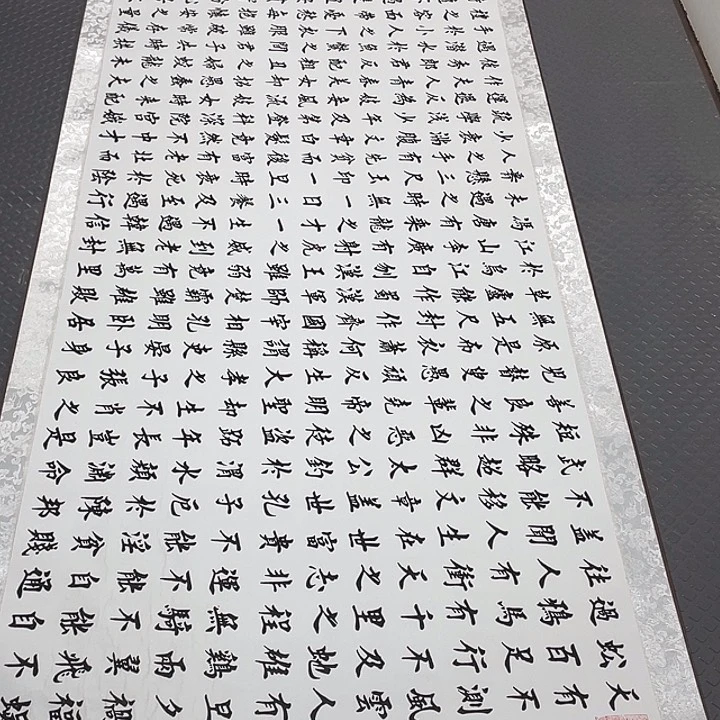 天有不測風雲人有旦夕禍福蜈
蚣百足行不及虵雄鷄兩翼飛不
過鴉馬有千里之程無騎不能自
往人有衝天之志非運不能自通
蓋聞人生在世富貴不能淫貧賤
不能移文章蓋世孔子厄於陳邦
武略超群太公釣於渭水顏淵命
短殊非凶惡之徒盜跖年長豈是
善良之輩堯帝明聖却生不肖之
兒瞽叟愚頑反生大孝之子張良
原是布衣蕭何稱謂縣吏晏子身
無五尺封作齊國宰相孔明卧居
草廬能作蜀漢軍師楚霸雖雄敗
於烏江自刎漢王雖弱竟有萬里
江山李廣有射虎之威到老無封
馮唐有乘龍之才一生不遇韓信
未遇之時無一日三養及至遇行
懸三尺玉印一旦時衰死於陰
人之手有先貧而後富有老壯而
少衰滿腹文章白髮竟然不中才
疏學淺少年及第登科深院
運退反為妓妾風流妓女時來配
作夫人青春美女却招愚蠢之夫
俊秀郎君反配粗醜之婦蛟龍未
遇潛水於魚